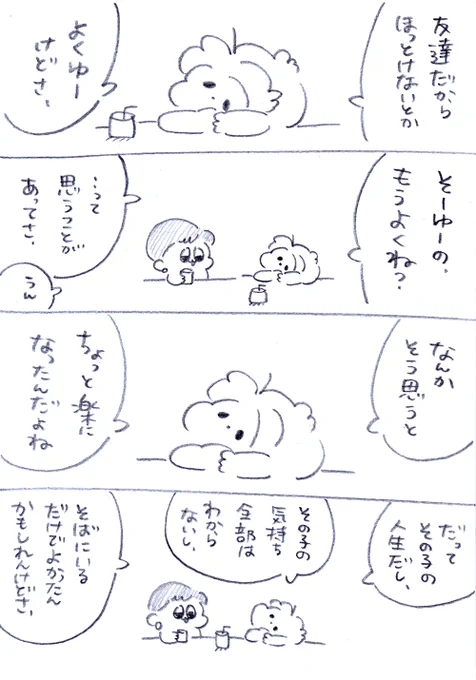 友達だから
ほっとけないとか
よくゆー
けどさ、
そーゆーの、
もうよくね?
…って
思うことが
あってさ、
うん
なんか
そう思うと
ちょっと楽に
なったんだよね
だって
その子の
人生だし、
その子の
気持ち
全部は
わから
ないし、
そばにいる
だけでよかったん
かもしれんけどさ、